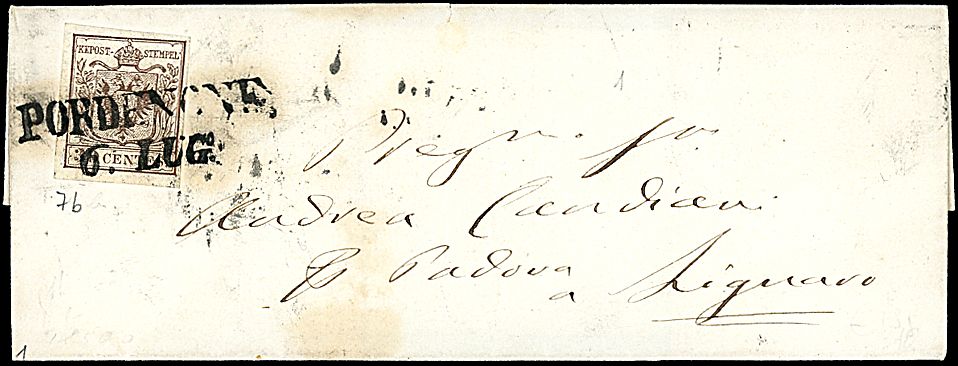 KKPOST-STEMPEL
PORDENONE
6. LUG.
30 CENTES
7b
Pregmo Sigr
Andrea Candiani
Ps Padova
a Lignaro
1